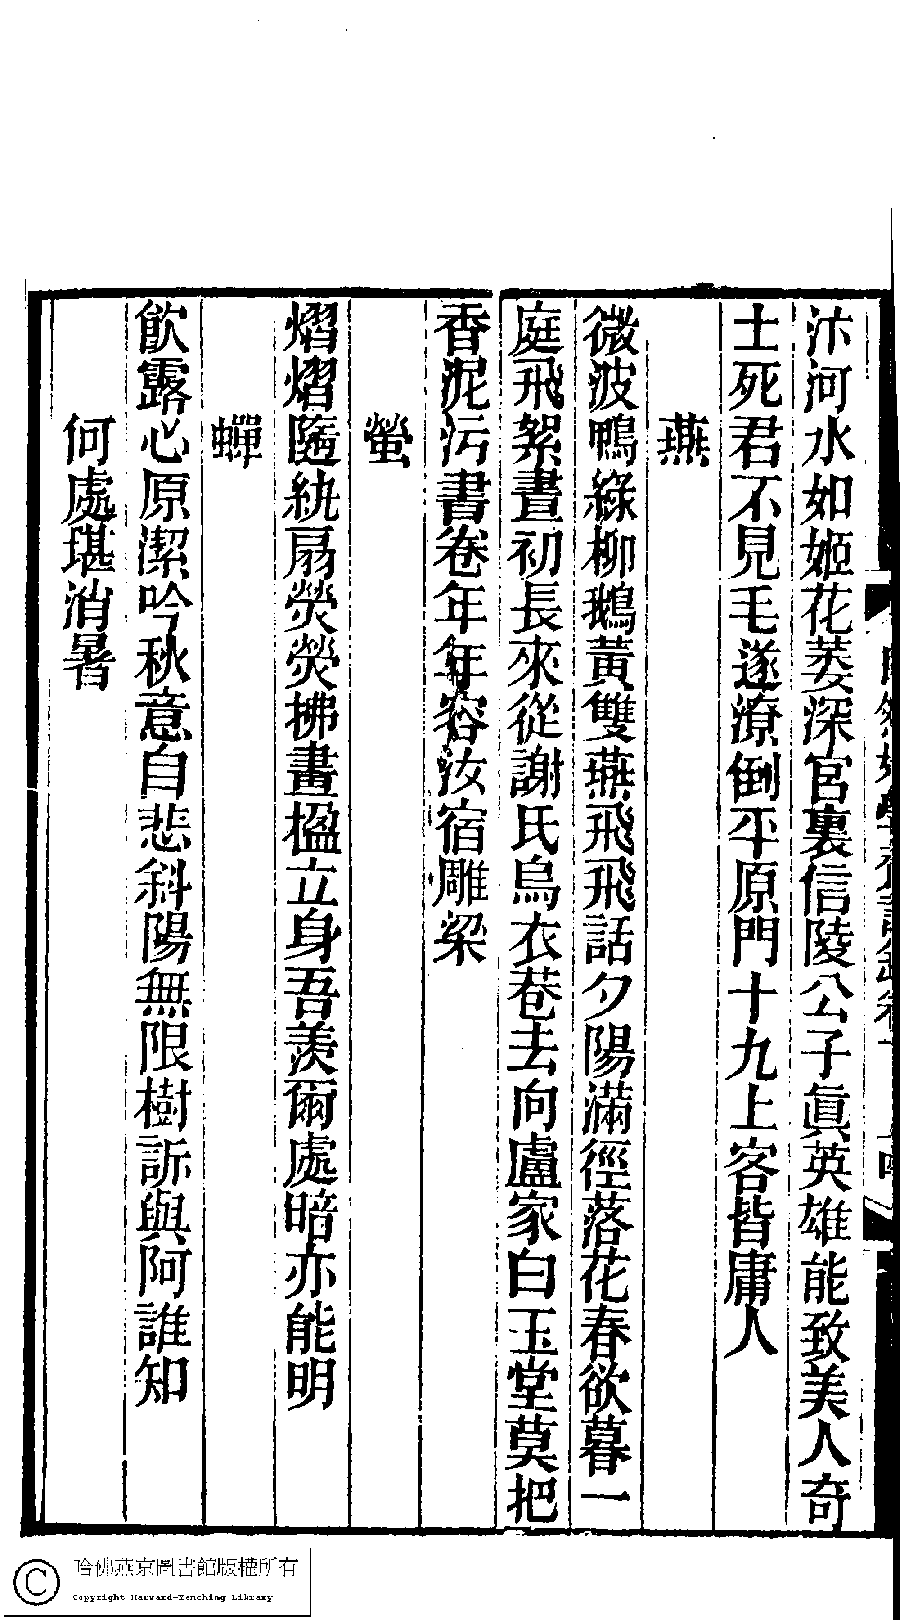 汴河水如姬花萎深宮裏信陵公子眞英雄能致美人奇
士死君不見毛遂潦倒平原門十九上客皆庸人
燕
微波鴨綠柳鵝黃雙燕飛飛話夕陽滿徑落花春欲暮一
庭飛絮晝初長來從謝氏烏衣巷去向盧家白玉堂莫把
香泥汚書卷年年容汝宿雕梁
螢
熠熠隨紈扇熒熒拂畫楹立身吾羨爾處暗亦能明
蟬
飮露心原潔吟秋意自悲斜陽無限樹訴與阿誰知
何處堪消暑
哈佛燕京圖書館版權所有
Copyright Harvard-Yenching Library